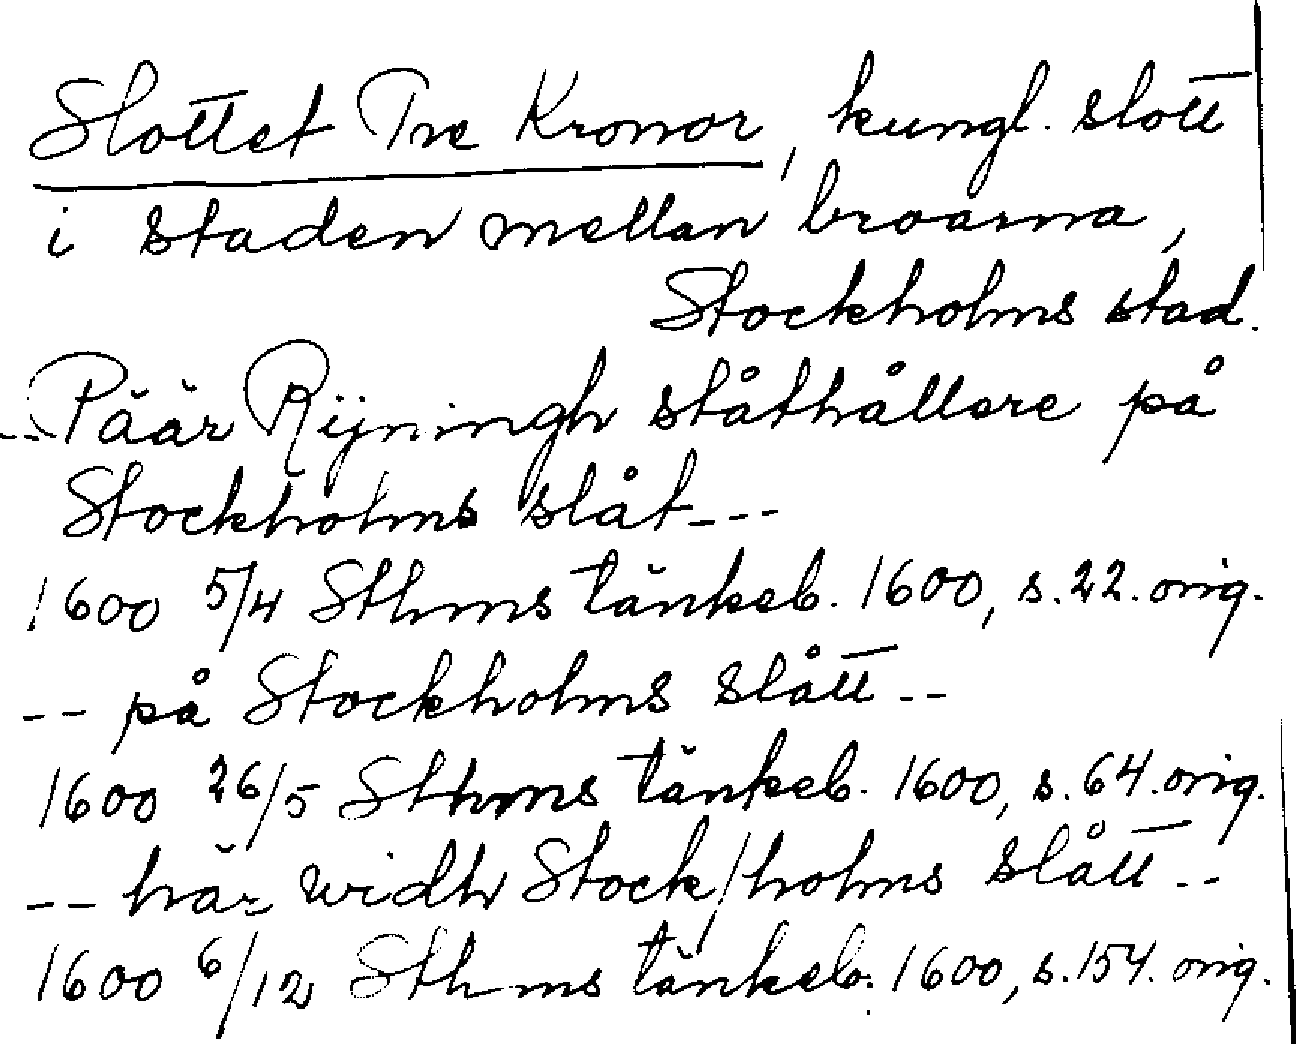 Slottet Tre Kronor, kungl. slott
i staden mellan broarna,
Stockholms stad.
--Päär Rijningh ståthållare på
Stockholms slåt---
1600 5/4 Sthms tänkeb. 1600, s.22. orig.
-- på Stockholms slått --
1600 26/5 Sthms tänkeb. 1600, s.64. orig.
-- här widh Stock/holms slått --
1600 6/12 Sthms tänkeb. 1600, s.154. orig.